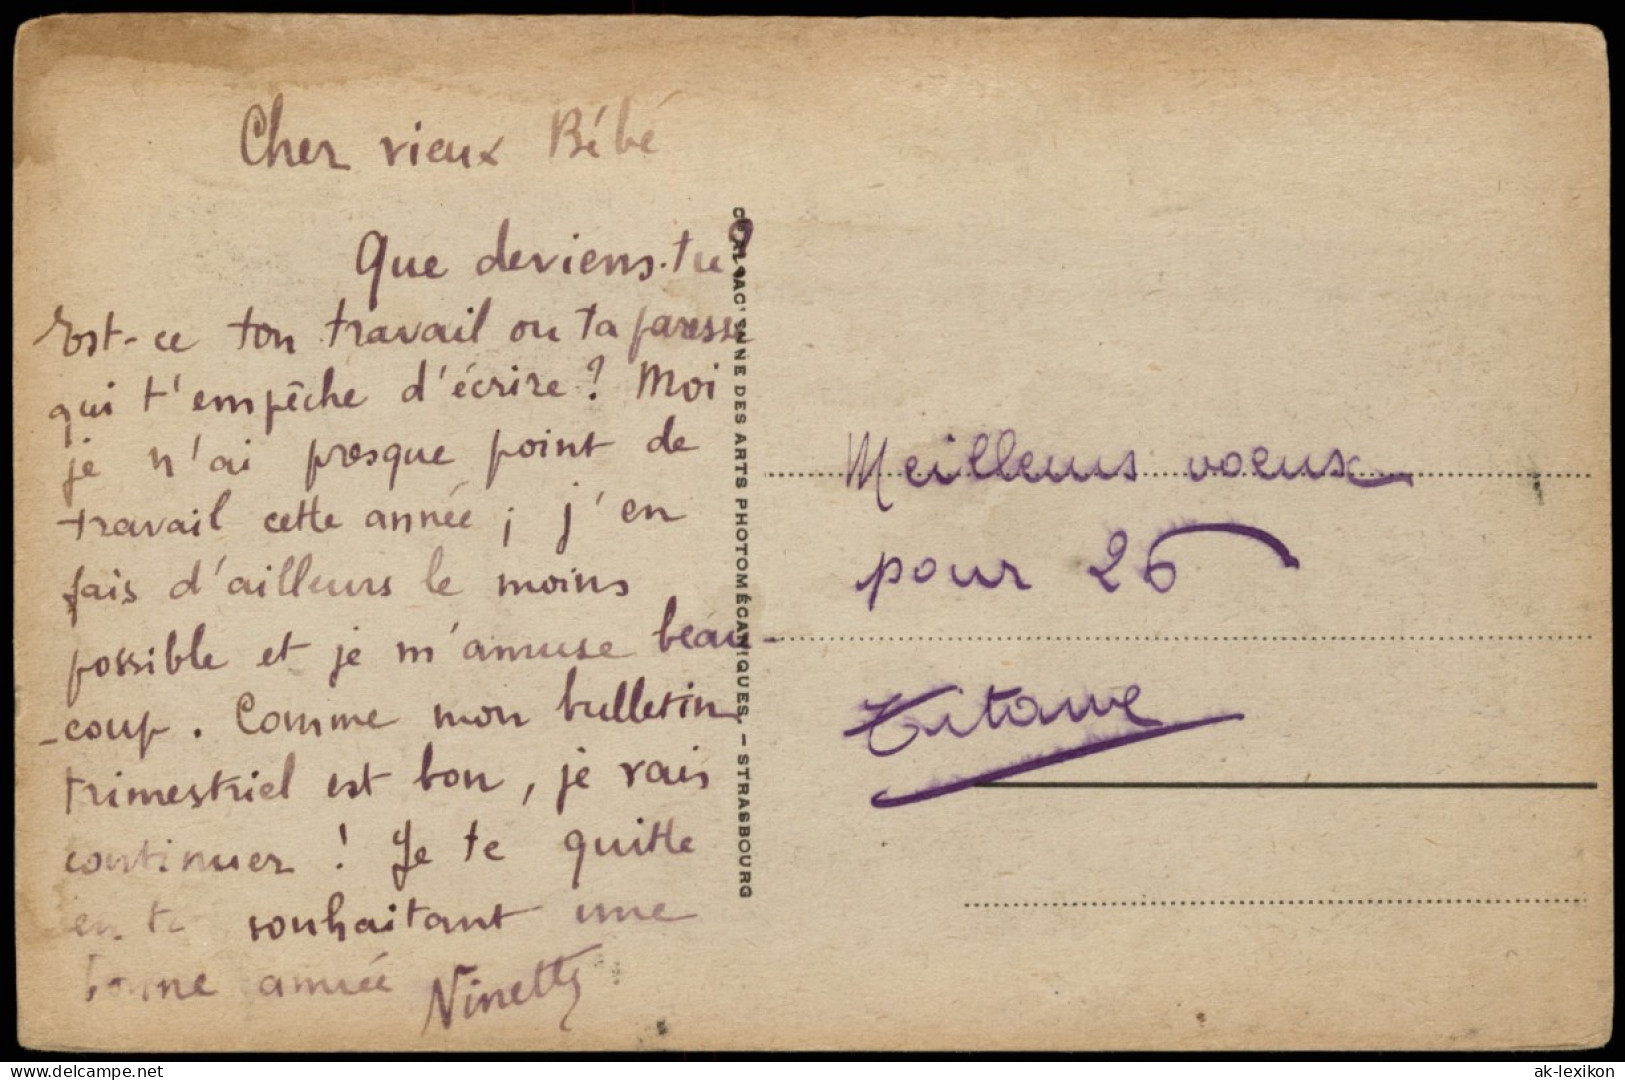 Cher vieux Bébé
Que deviens-tu ?
Est-ce ton travail ou ta paresse
qui t'empêche d'écrire ? Moi
je n'ai presque point de
travail cette année ; j'en
fais d'ailleurs le moins
possible et je m'amuse beau-
-coup. Comme mon bulletin
trimestriel est bon, je vais
continuer ! Je te quitte
en te souhaitant une
bonne année Ninette
DES ARTS PHOTOMÉCANIQUES. – STRASBOURG
Meilleurs voeux
pour 26
delcampe.net
ak-lexikon